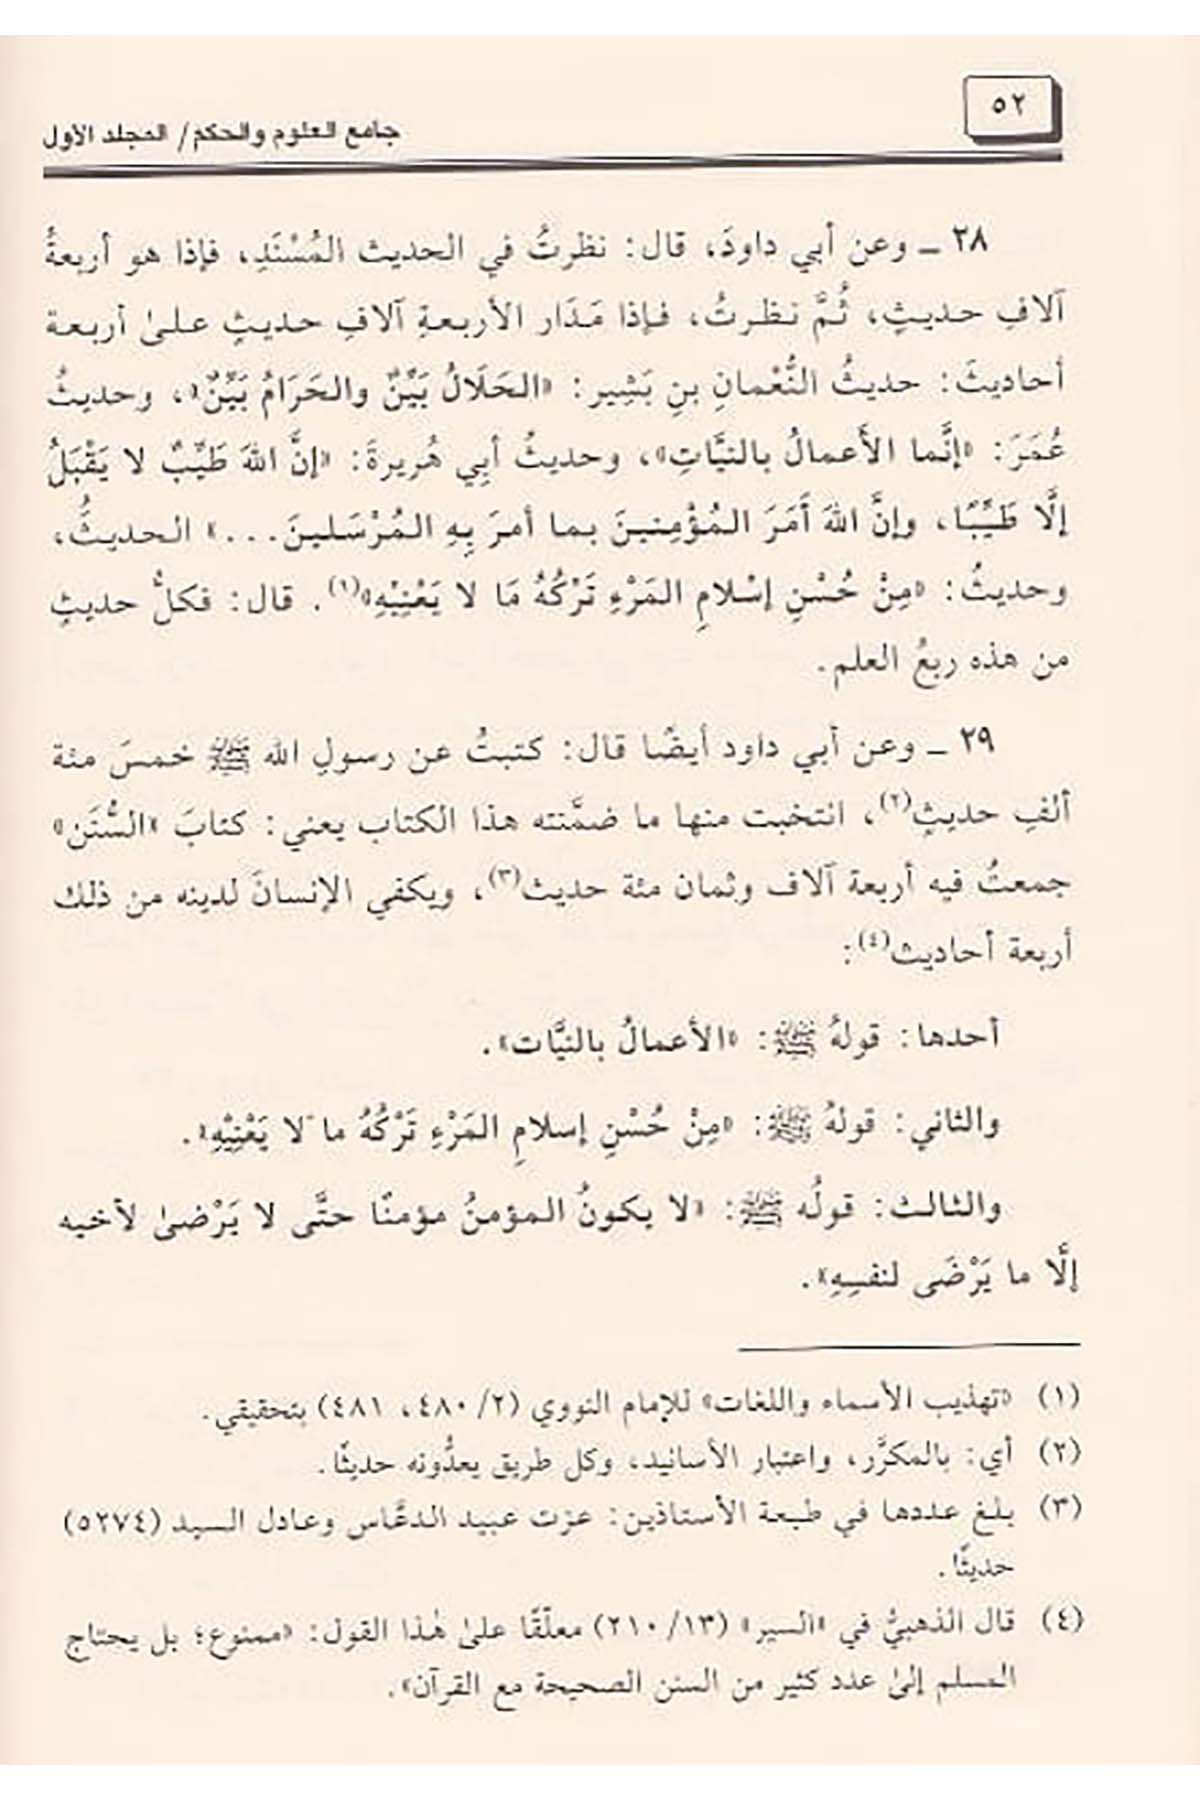 ٥٢
جامع العلوم والحكم / المجلد الأول
٢٨ ـ وعن أبي داودَ، قال: نظرتُ في الحديث المُسْنَدِ، فإذا هو أربعةُ
آلافِ حديثٍ، ثُمَّ نظرتُ، فإذا مَدَار الأربعةِ آلافِ حديثٍ علىٰ أربعة
أحاديثَ: حديثُ النُّعْمانِ بنِ بَشِير: «الحَلَالُ بَيِّنٌ والحَرَامُ بَيِّنٌ»، وحديثُ
عُمَرَ: «إنَّما الأَعمالُ بالنيَّاتِ»، وحديثُ أبِي هُريرةَ: «إنَّ اللهَ طَيِّبٌ لا يَقْبَلُ
إلَّا طَيِّبًا، وإنَّ اللهَ أَمَرَ المُؤْمِنينَ بما أمرَ بِهِ المُرْسَلينَ...» الحديثُ،
وحديثُ: «مِنْ حُسْنِ إسْلامِ المَرْءِ تَرْكُهُ مَا لا يَعْنِيْهِ»(١). قال: فكلُّ حديثٍ
من هذه ربعُ العلم.
٢٩ ـ وعن أبي داود أيضًا قال: كتبتُ عن رسولِ الله ﷺ خمسَ مئة
ألفِ حديثٍ(٢)، انتخبت منها ما ضمَّنته هذا الكتاب يعني: كتابَ «السُّنَن»
جمعتُ فيه أربعة آلاف وثمان مئة حديث(٣)، ويكفي الإنسانَ لدينه من ذلك
أربعة أحاديث(٤):
أحدها: قولهُ ﷺ: «الأعمالُ بالنيَّات».
والثاني: قولهُ ﷺ: «مِنْ حُسْنِ إسلامِ المَرْءِ تَرْكُهُ ما لا يَعْنِيْهِ».
والثالث: قولُه ﷺ: «لا يكونُ المؤمنُ مؤمنًا حتَّى لا يَرْضىٰ لأخيه
إلَّا ما يَرْضَى لنفسِهِ».
(١) «تهذيب الأسماء واللغات» للإمام النووي (٢/ ٤٨٠، ٤٨١) بتحقيقي.
(٢) أي: بالمكرَّر، واعتبار الأسانيد، وكل طريق يعدُّونه حديثًا.
(٣) بلغ عددها في طبعة الأستاذين: عزت عبيد الدعَّاس وعادل السيد (٥٢٧٤)
حديثًا.
(٤) قال الذهبيُّ في «السير» (١٣/ ٢١٠) معلّقًا علىٰ هٰذا القول: «ممنوع؛ بل يحتاج
المسلم إلىٰ عدد كثير من السنن الصحيحة مع القرآن».